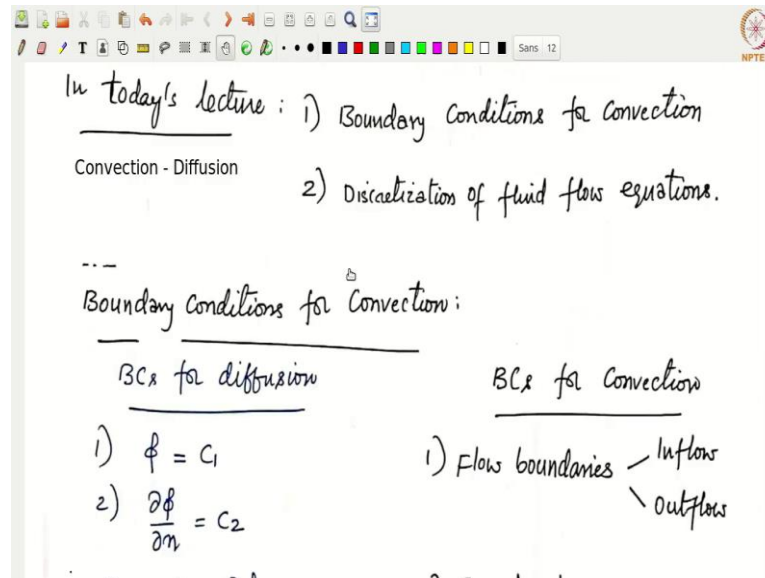 Sans 12
NPTE
In today's lecture: 1) Boundary Conditions for Convection
Convection - Diffusion
2) Discretization of fluid flow equations.
Boundary Conditions for Convection:
BCs for diffusion
1) ϕ = C1
2) ∂ϕ/∂n = C2
BCs for Convection
1) Flow boundaries
Inflow
Outflow